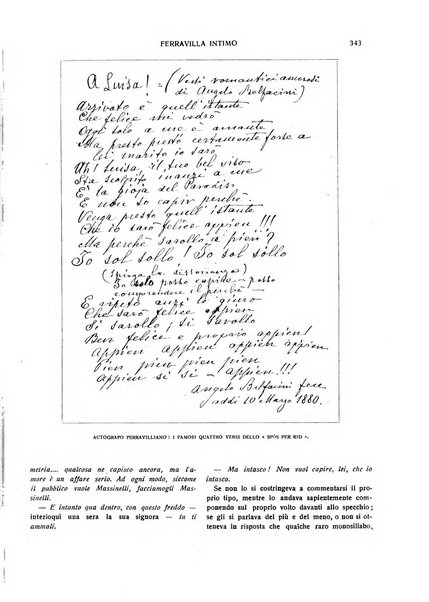 FERRAVILLA INTIMO
343
A Luisa! = (Versi romantici amorosi
di Angelo Bolfacini)
Arrivato è quell'istante
Che felice mi vedrò
Oggi solo a me è amante
Ma presto presto certamente forse a
lei marito io sarò
Ah! Luisa il tuo bel viso
Sta scolpito inanzi a me
E' la gioja del Paradiso
E non so capir perchè.
Venga presto quell'istante
Che io sarò felice appien!!!
Ma perchè sarollo a pien?
Io sol sollo! Io sol sollo
(Spiega la dissonanza)
Io solo posso capire - posso
comprendere il perchè -
E ripeto anzi lo giuro
Che sarò felice appien
Si sarollo; si sarollo
Ben felice e proprio appien!
Appien appien appien!
Pien pien pien pien
Appien si si - appien!
Angelo Bolfacini fece
addi 10 Marzo 1880.
AUTOGRAFO FERRAVILLIANO: I FAMOSI QUATTRO VERSI DELLO « SPÔS PER RID ».
metria.... qualcosa ne capisco ancora, ma l'a-
more è un affare serio. Ad ogni modo, siccome
il pubblico vuole Massinelli, facciamogli Mas-
sinelli.
— E intanto qua dentro, con questo freddo —
interloquì una sera la sua signora — tu ti
ammali.
— Ma intasco! Non vuol capire, lei, che io
intasco.
Se non lo si costringeva a commettere il pro-
prio tipo, mentre lo andava sapientemente com-
ponendo sul proprio viso davanti allo specchio;
se gli si parlava del più e del meno, o non si ot-
teneva in risposta che qualche raro monosillabo,